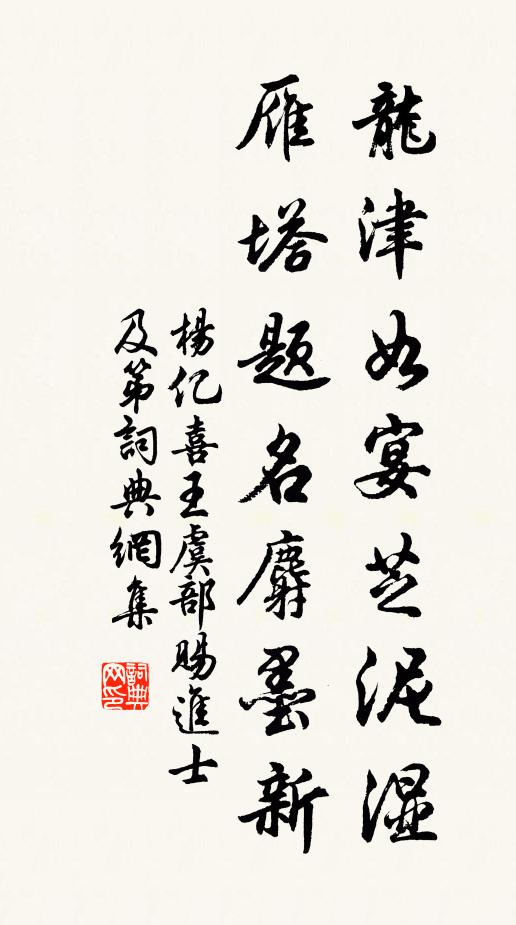 龍津如宴芝泥湿
雁塔题名麝墨新
楊亿喜王虞部賜進士
及第詞典網集
詞典网印